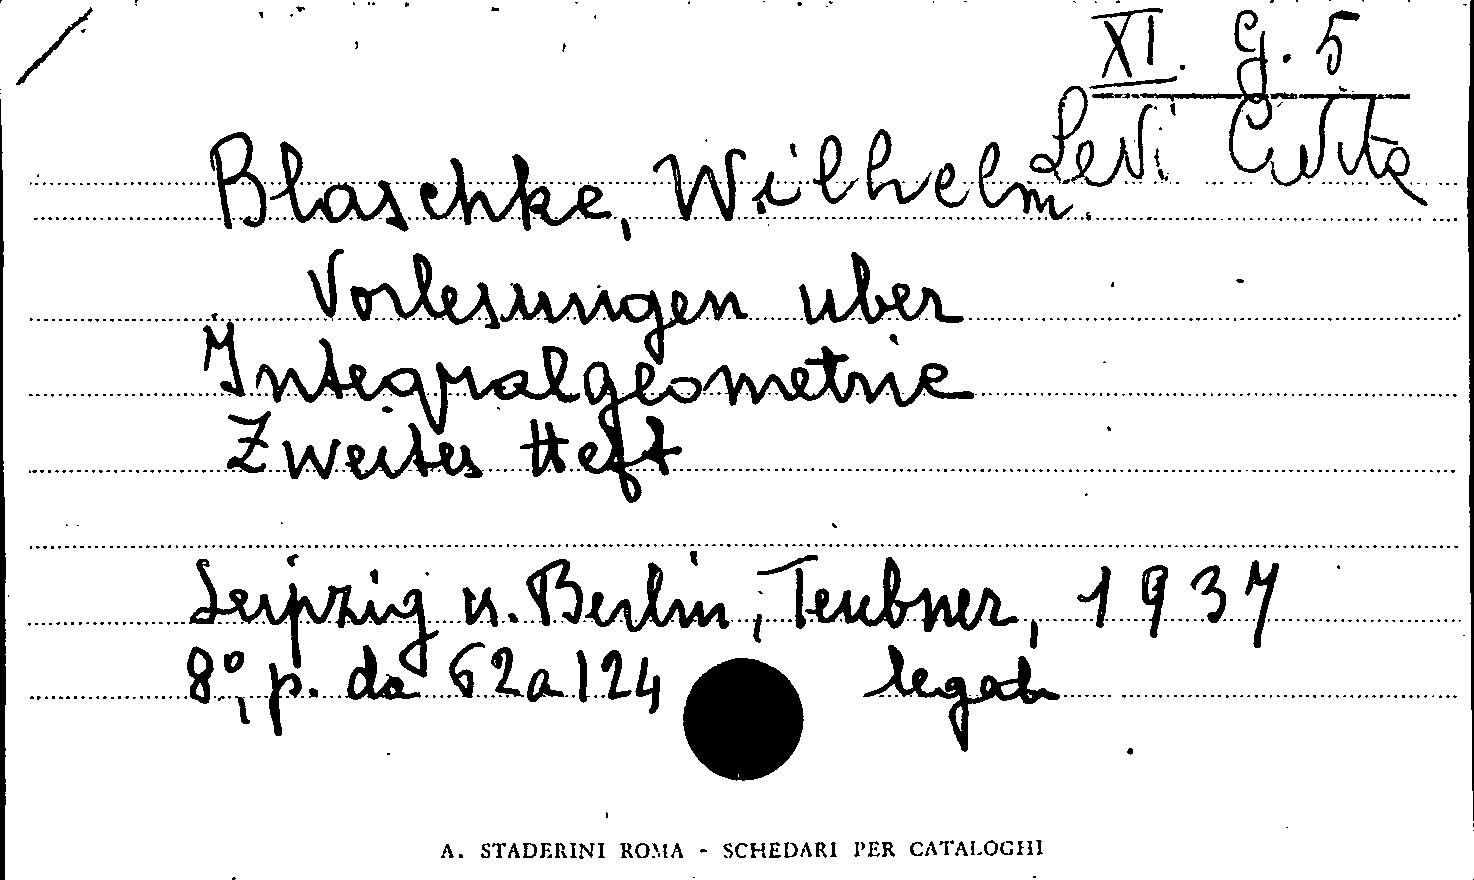 XI. G. 5
Levi Civita
Blaschke, Wilhelm.
Vorlesungen uber
Integralgeometrie
Zweites Heft
Leipzig u. Berlin, Teubner, 1937
8°, p. da 62 a 124 legato
A. STADERINI ROMA - SCHEDARI PER CATALOGHI